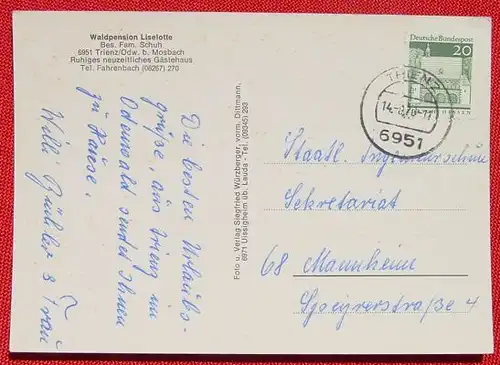 Waldpension Liselotte
Bes. Fam. Schuh
6951 Trienz/Odw. b. Mosbach
Ruhiges neuzeitliches Gästehaus
Tel. Fahrenbach (06267) 270
Die besten Urlaubs-
grüße, aus Trienz im
Odenwald sendet Ihnen
zu Hause.
Willi Bühler & Frau
Foto u. Verlag Siegfried Würzberger, vorm. Dittmann,
6971 Uissigheim üb. Lauda - Tel. (09345) 293
Deutsche Bundespost
20
TRIENZ
6951
Staatl. Ingenieurschule
Sekretariat
68 Mannheim
Speyrerstraße 4